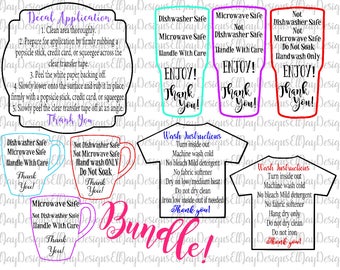 Decal Application
1. Clean area thoroughly.
2. Prepare for application by firmly rubbing a
popsicle stick, credit card, or squeegee across the
clear transfer tape.
3. Peel the white paper backing off.
4. Slowly lower onto the surface and rub it in place
firmly with a popsicle stick, credit card, or squeegee
5. Slowly peel the clear transfer tape off at an angle.
Thank You
Dishwasher Safe
Not
Microwave Safe
Handle With Care
ENJOY!
Thank
You!
Microwave Safe
Not
Dishwasher Safe
Handle With Care
ENJOY!
Thank
You!
Not
Dishwasher Safe
Not
Microwave Safe
Do Not Soak
Handwash Only
Thank
You!
Dishwasher Safe
Not Microwave Safe
Handle With Care
Thank
You!
Not Dishwasher Safe
Not Microwave Safe
Hand wash ONLY
Do Not Soak
Thank You!
Microwave Safe
Not Dishwasher Safe
Handle With Care
Thank
You!
Wash Instructions
Turn inside out
Machine wash cold
No bleach Mild detergent
No fabric softener
Dry on low/medium heat
Do not dry clean
Iron low inside out if needed
Thank you!
Wash Instructions
Turn inside out
Machine wash cold
No bleach Mild detergent
No fabric softener
Hang dry only
Do not dry clean
Do not iron
Thank you!
Bundle!
EllJayDesigns